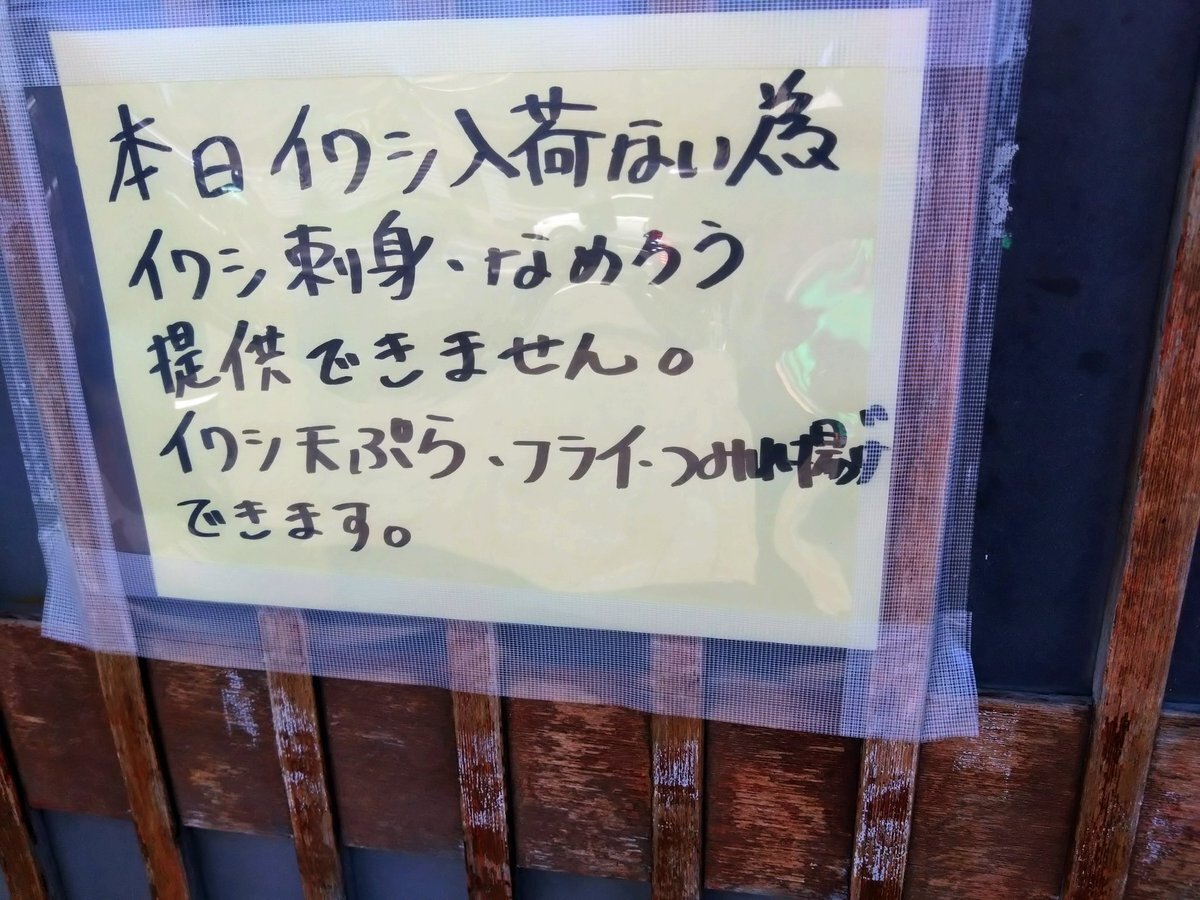 本日イワシ入荷ない為
イワシ刺身、なめろう
提供できません。
イワシ天ぷら、フライ、つみれ揚げ
できます。